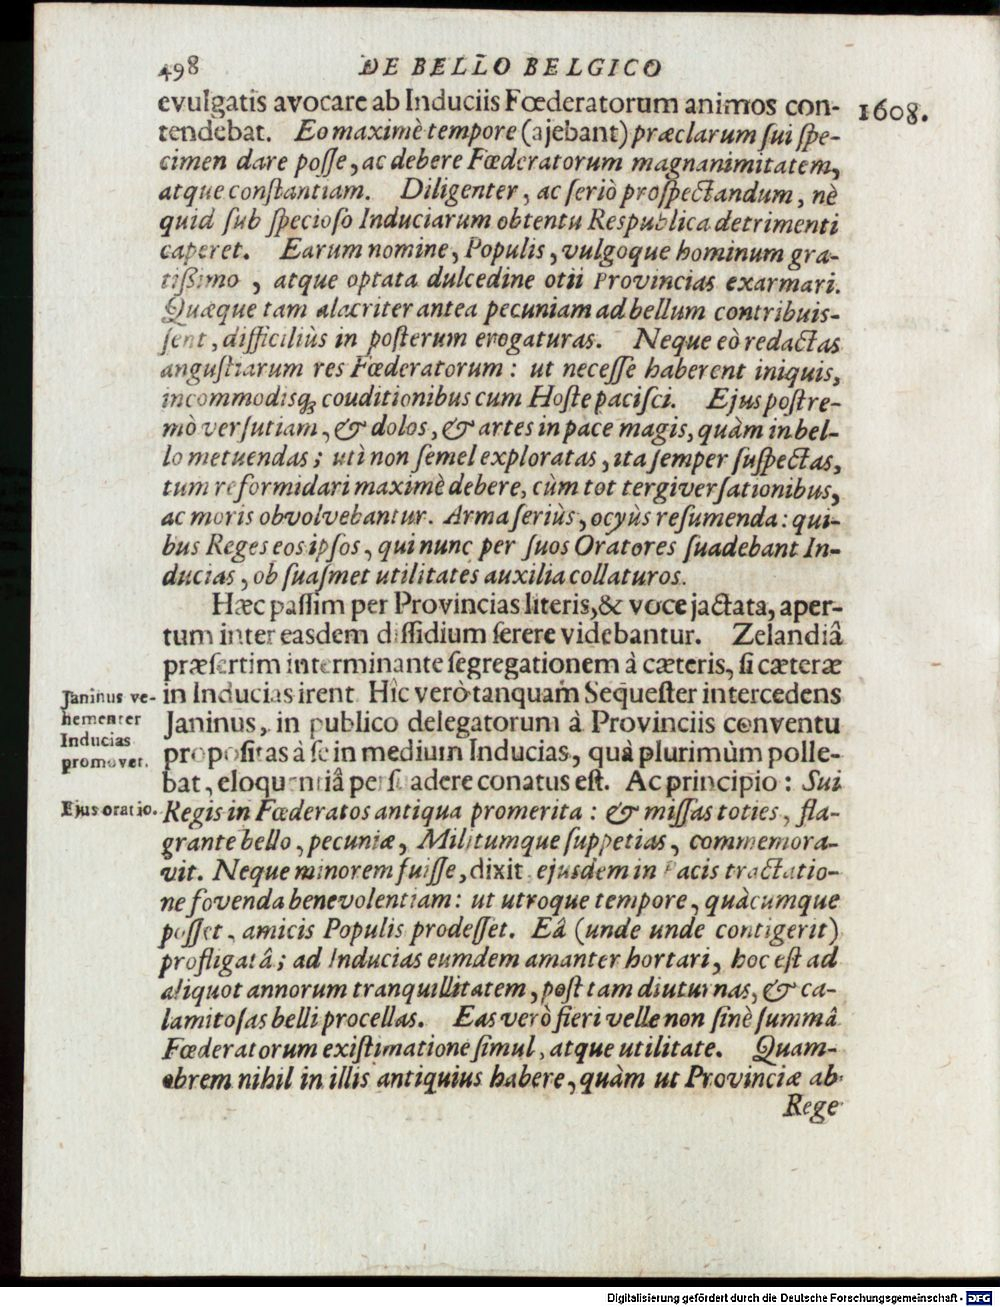 498 DE BELLO BELGICO
evulgatis avocare ab Induciis Fœderatorum animos con-
1608.
tendebat. Eo maximè tempore (ajebant) præclarum ſui ſpe-
cimen dare poſſe, ac debere Fœderatorum magnanimitatem,
atque conſtantiam. Diligenter, ac ſeriò proſpectandum, nè
quid ſub ſpecioſo Induciarum obtentu Respublica detrimenti
caperet. Earum nomine, Populis, vulgoque hominum gra-
tiſſimo, atque optata dulcedine otii Provincias exarmari.
Quæque tam alacriter antea pecuniam ad bellum contribuiſ-
ſent, difficiliùs in poſterum erogaturas. Neque eò redactas
anguſtiarum res Fœderatorum: ut neceſſe haberent iniquis,
incommodisq; couditionibus cum Hoſte paciſci. Ejus poſtre-
mò verſutiam, & dolos, & artes in pace magis, quàm in bel-
lo metuendas; utì non ſemel exploratas, ita ſemper ſuſpectas,
tum reformidari maximè debere, cùm tot tergiverſationibus,
ac moris obvolvebantur. Arma ſeriùs, ocyùs reſumenda: qui-
bus Reges eos ipſos, qui nunc per ſuos Oratores ſuadebant In-
ducias, ob ſuaſmet utilitates auxilia collaturos.
Hæc paſſim per Provincias literis, & voce jactata, aper-
tum inter easdem diſſidium ſerere videbantur. Zelandiâ
præſertim interminante ſegregationem â cæteris, ſi cæteræ
in Inducias irent Hîc verò tanquam Sequeſter intercedens
Janinus, in publico delegatorum â Provinciis conventu
propoſitas à ſe in medium Inducias, quâ plurimùm polle-
bat, eloquentiâ perſuadere conatus eſt. Ac principio: Sui
Janinus ve-
hementer
Inducias
promovet.
Ejus oratio.
Regis in Fœderatos antiqua promerita: & miſſas toties, fla-
grante bello, pecuniæ, Militumque ſuppetias, commemora-
vit. Neque minorem fuiſſe, dixit ejusdem in Pacis tractatio-
ne fovenda benevolentiam: ut utroque tempore, quàcumque
poſſet, amicis Populis prodeſſet. Eâ (unde unde contigerit)
profligatâ; ad Inducias eumdem amanter hortari, hoc eſt ad
aliquot annorum tranquillitatem, poſt tam diuturnas, & ca-
lamitoſas belli procellas. Eas verò fieri velle non ſinè ſummâ
Fœderatorum exiſtimatione ſimul, atque utilitate. Quam-
obrem nihil in illis antiquius habere, quàm ut Provinciæ ab
Rege
Digitalisierung gefördert durch die Deutsche Forschungsgemeinschaft - DFG